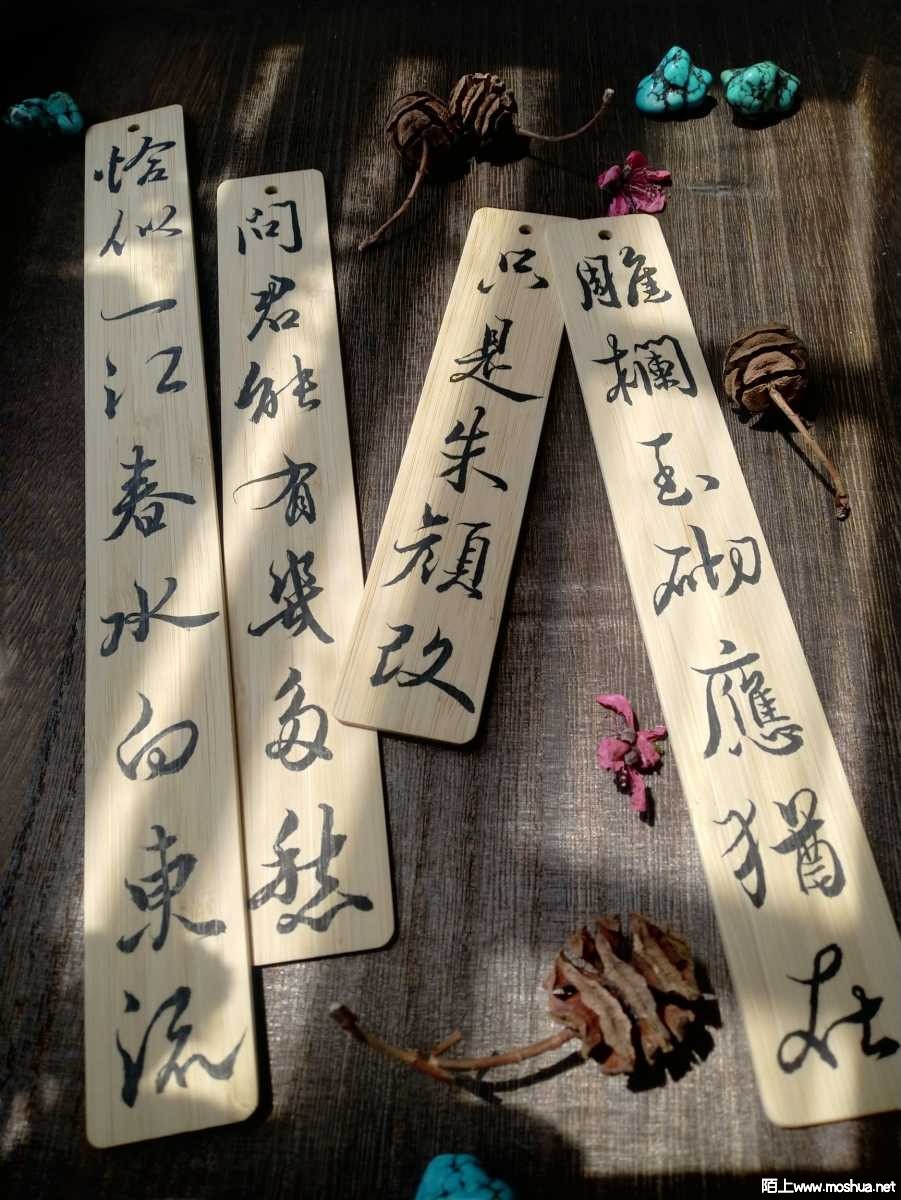 雕欄玉砌應猶在
只是朱顔改
問君能有幾多愁
恰似一江春水向東流
陌上www.moshua.net